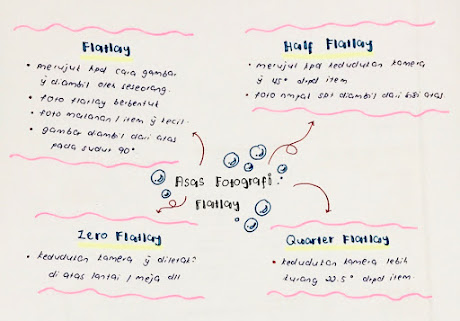 Flatlay
• merujuk kpd cara gambar
ÿ diambil oleh seseorang.
• foto flatlay berbentuk
• foto makanan / item ÿ kecil.
• gambar diambil dari atas
pada sudut 90°
Half Flatlay
• merujuk kpd kedudukan kamera
ÿ 45° drpd item
• foto nmpk spt diambil dari sisi atas.
Asas Fotografi
Flatlay
Zero Flatlay
• kedudukan kamera ÿ diletak²
di atas lantai / meja dll
Quarter Flatlay
• kedudukan kamera lebih
kurang 22.5° drpd item.